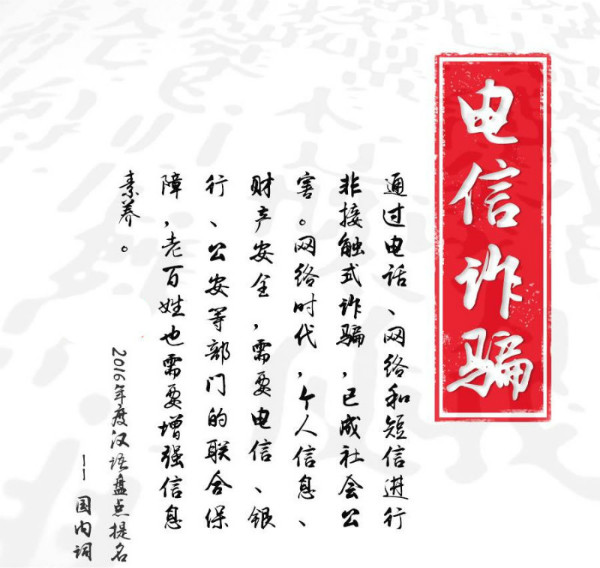 电信诈骗
通过电话、网络和短信进行
非接触式诈骗，已成社会公
害。网络时代，个人信息、
财产安全，需要电信、银
行、公安等部门的联合保
障，老百姓也需要增强信息
素养。
2016年度汉语盘点提名
——国内词